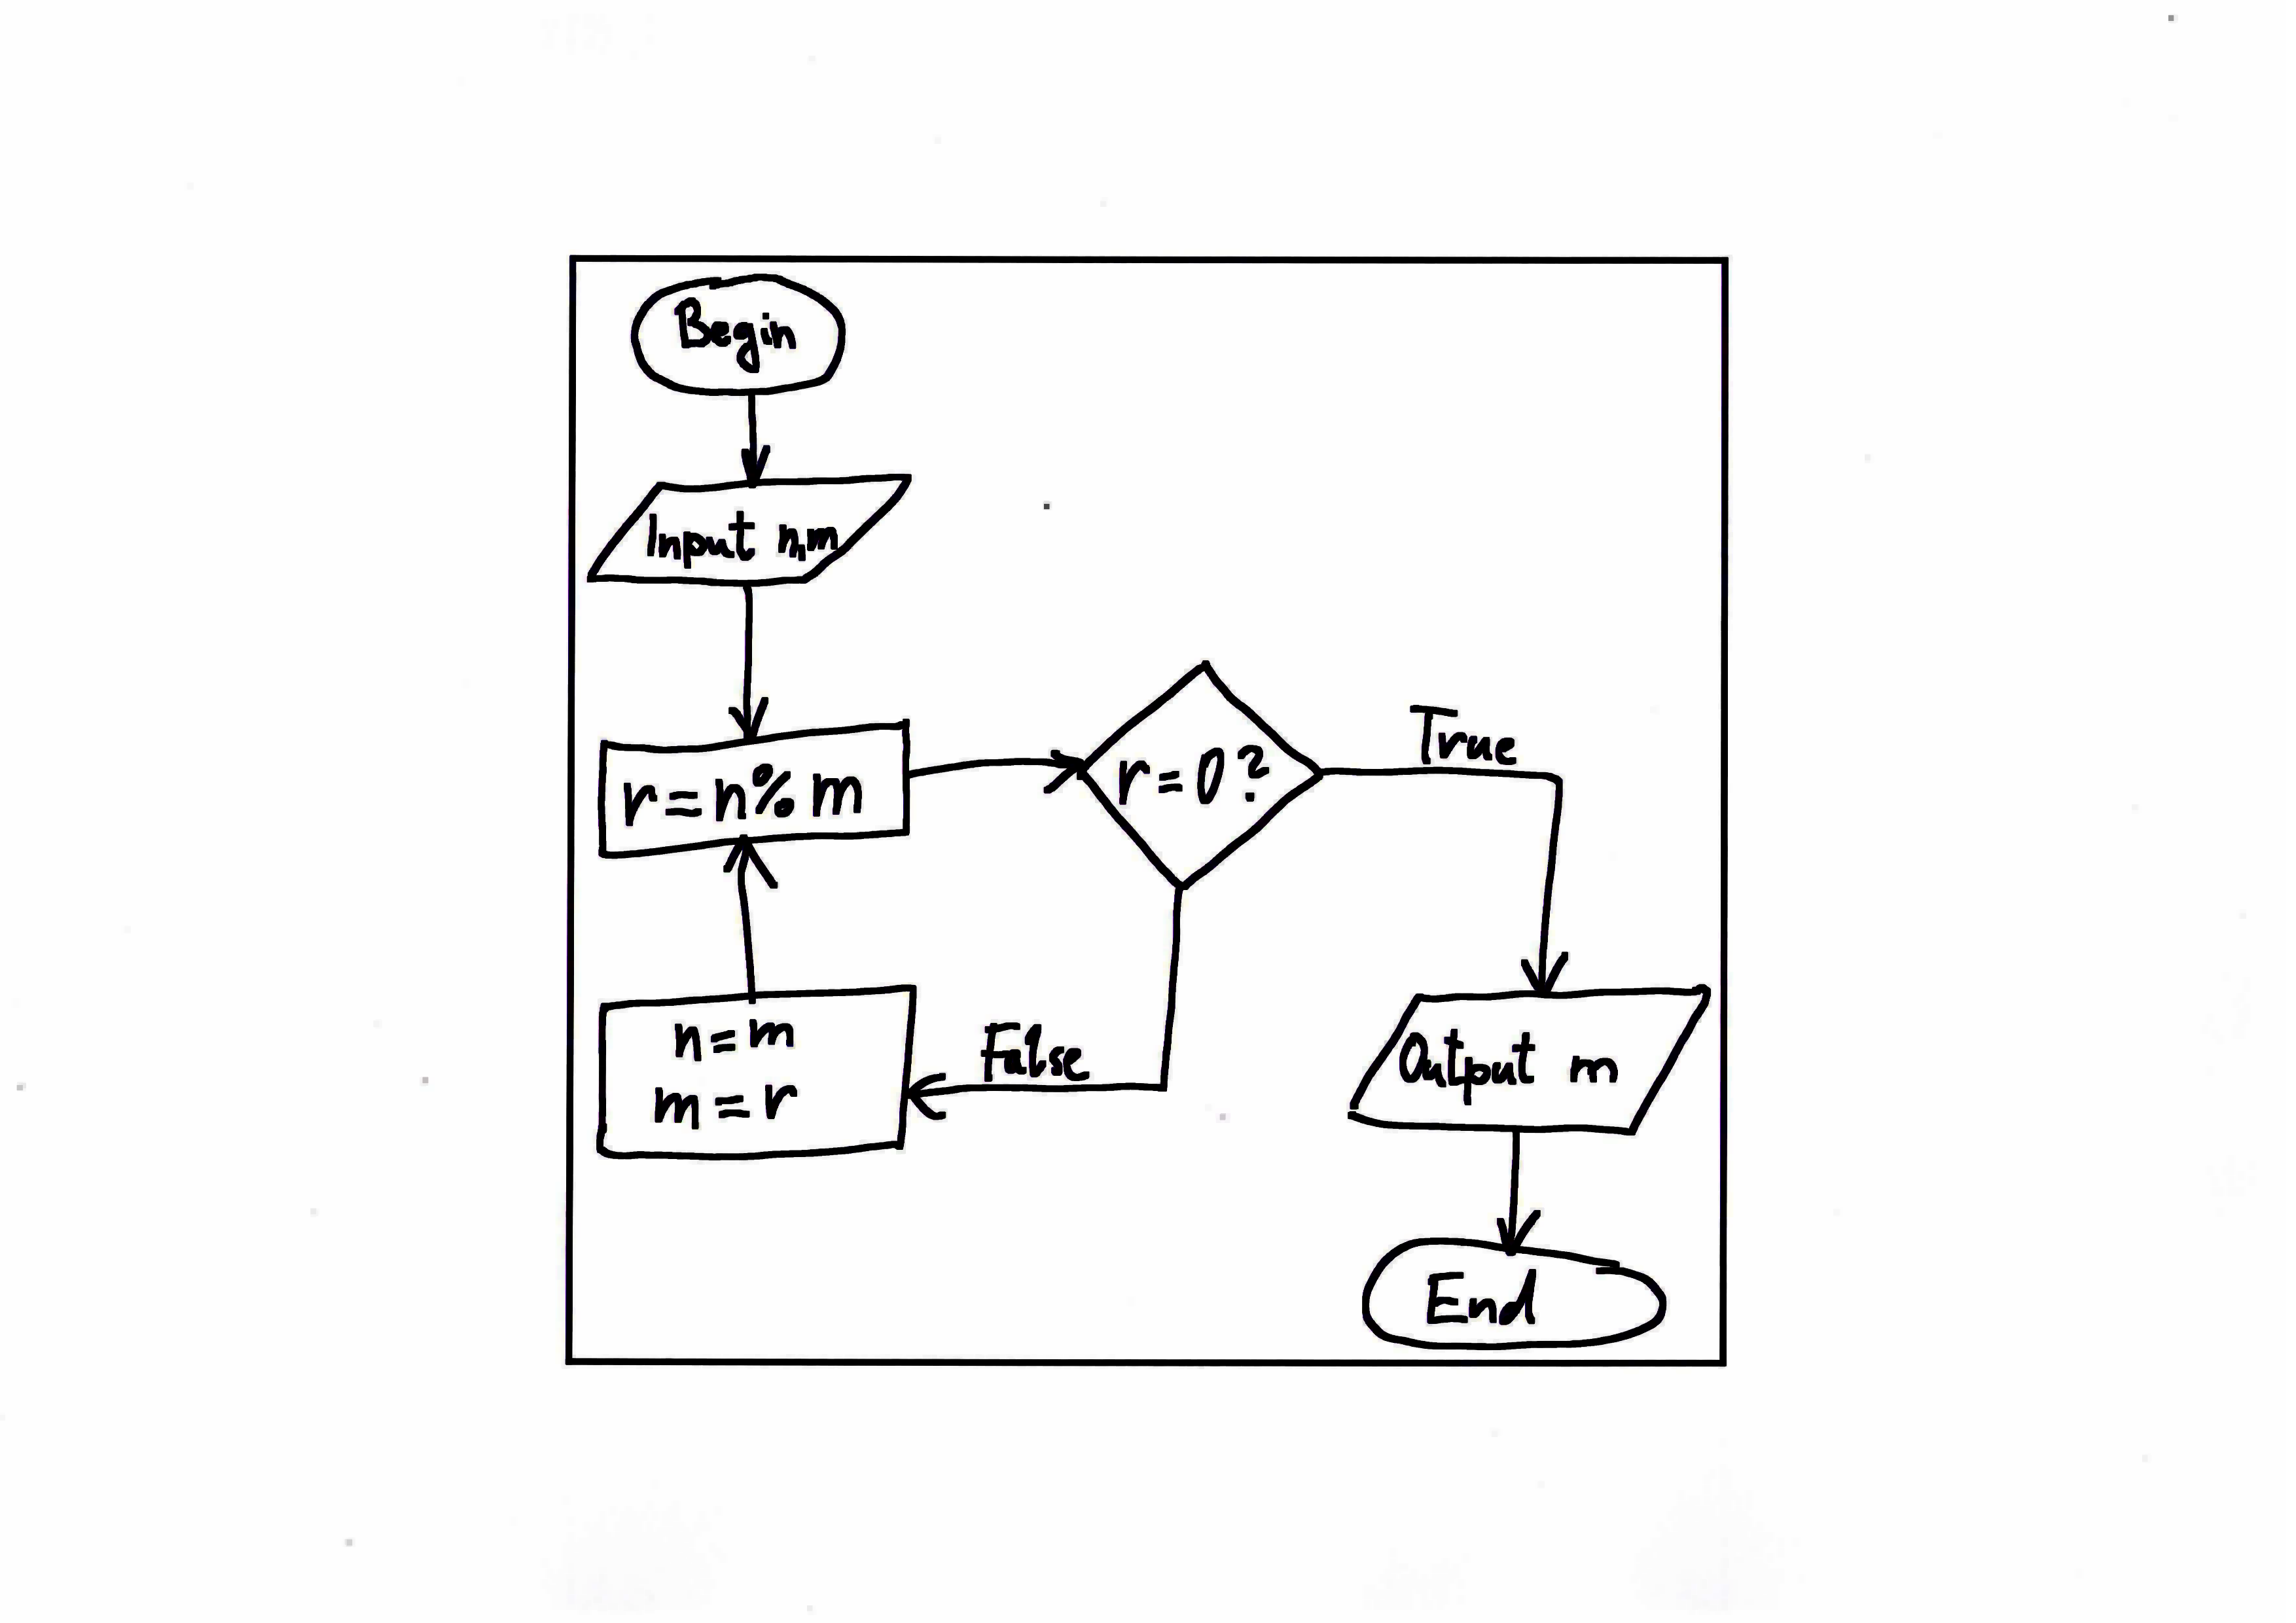 Begin
Input n,m
r=n%m
r=0?
True
False
n=m
m=r
Output m
End